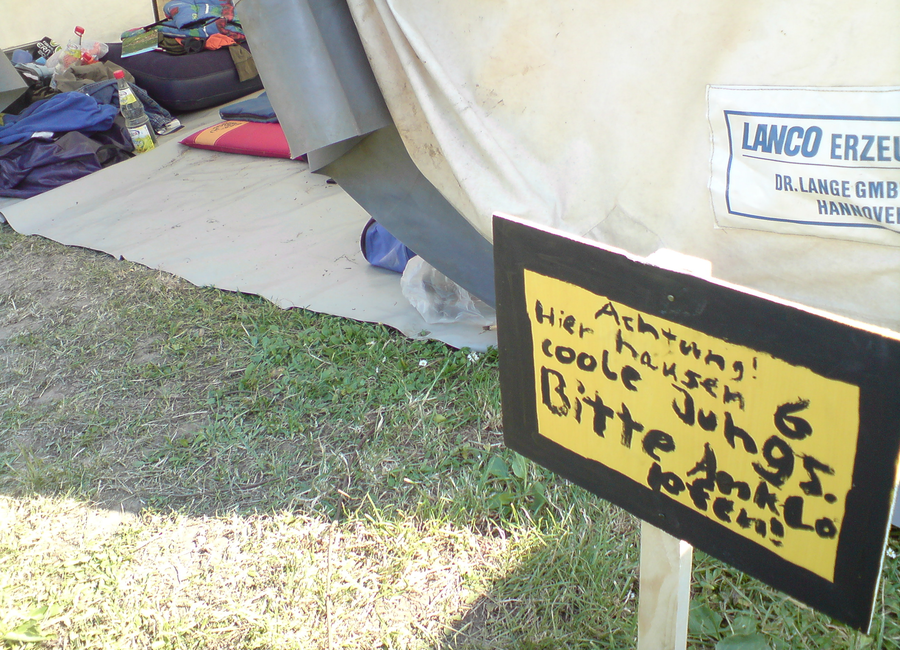 LANCO ERZEU
DR.LANGE GMB
HANNOVER
Achtung!
Hier hausen 6
coole Jungs.
Bitte AnkLo
pfen!